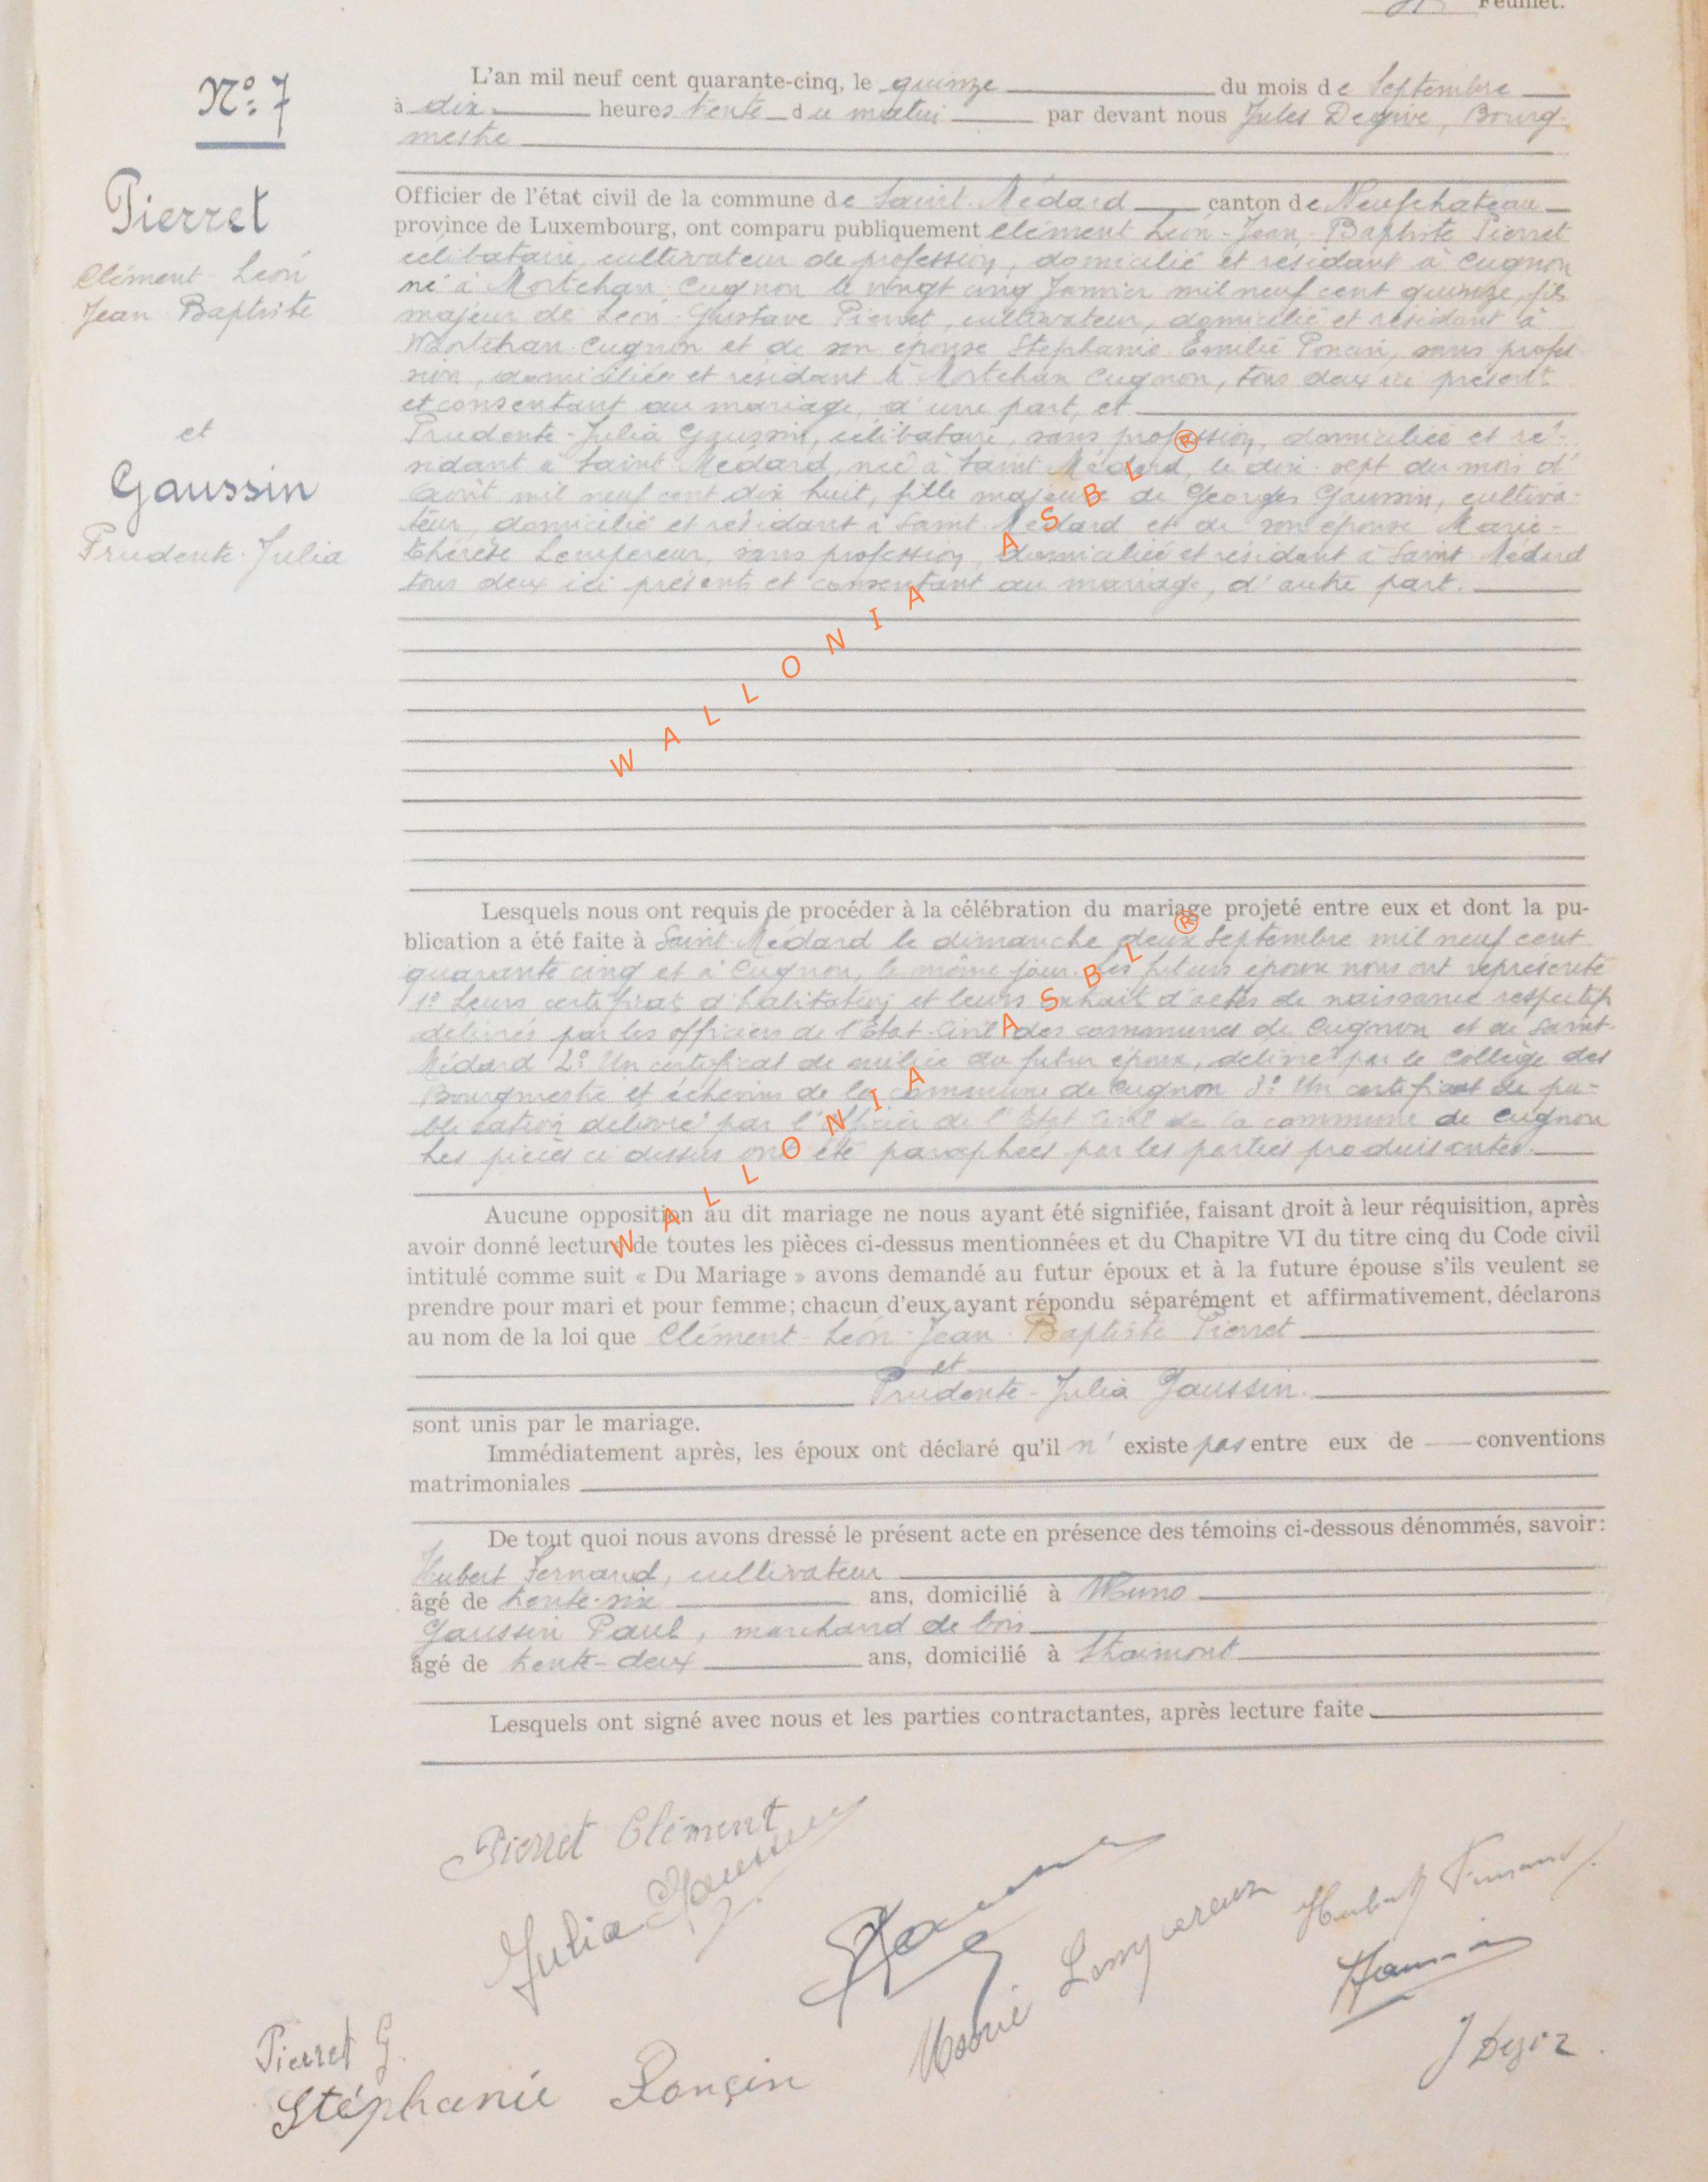 Feuillet.
N° 7
L'an mil neuf cent quarante-cinq, le quinze du mois de Septembre
à dix heures trente du matin par devant nous Jules Degive, Bourg-
mestre
Pierret
Clément Léon
Jean Baptiste
et
Gaussin
Prudente-Julia
Officier de l'état civil de la commune de Saint-Médard canton de Neufchateau
province de Luxembourg, ont comparu publiquement Clément Léon-Jean-Baptiste Pierret
célibataire, cultivateur de profession, domicilié et résidant à Cugnon
né à Mortehan Cugnon le vingt cinq Janvier mil neuf cent quinze, fils
majeur de Léon Gustave Pierret, cultivateur, domicilié et résidant à
Mortehan Cugnon et de son épouse Stéphanie Emilie Poncin, sans profes-
sion, domiciliée et résidant à Mortehan Cugnon, tous deux ici présents
et consentant au mariage, d'une part, et
Prudente-Julia Gaussin, célibataire, sans profession, domiciliée et ré-
sidant à Saint Médard, née à Saint Médard, le dix-sept du mois d'
Août mil neuf cent dix huit, fille majeure de Georges Gaussin, cultiva-
teur, domicilié et résidant à Saint Médard et de son épouse Marie-
Thérèse Lempereur, sans profession, domiciliée et résidant à Saint Médard
tous deux ici présents et consentant au mariage, d'autre part.
WALLONIA ASBL ®
Lesquels nous ont requis de procéder à la célébration du mariage projeté entre eux et dont la pu-
blication a été faite à Saint-Médard le dimanche deux Septembre mil neuf cent
quarante cinq et à Cugnon, le même jour. Les futurs époux nous ont représenté
1° Leurs certificat d'habitation et leurs extrait d'actes de naissance respectifs
délivrés par les officiers de l'Etat-Civil des communes de Cugnon et de Saint-
Médard 2° Un certificat de milice du futur époux, délivré par le Collège des
Bourgmestre et échevins de la commune de Cugnon 3° Un certificat de pu-
blication délivré par l'Officier de l'Etat Civil de la commune de Cugnon
Les pièces ci dessus ont été paraphées par les parties produisantes.
WALLONIA ASBL ®
Aucune opposition au dit mariage ne nous ayant été signifiée, faisant droit à leur réquisition, après
avoir donné lecture de toutes les pièces ci-dessus mentionnées et du Chapitre VI du titre cinq du Code civil
intitulé comme suit « Du Mariage » avons demandé au futur époux et à la future épouse s'ils veulent se
prendre pour mari et pour femme; chacun d'eux ayant répondu séparément et affirmativement, déclarons
au nom de la loi que Clément-Léon-Jean-Baptiste Pierret
et
Prudente-Julia Gaussin.
sont unis par le mariage.
Immédiatement après, les époux ont déclaré qu'il n' existe pas entre eux de conventions
matrimoniales
De tout quoi nous avons dressé le présent acte en présence des témoins ci-dessous dénommés, savoir:
Hubert Fernand, cultivateur
âgé de trente-six ans, domicilié à Muno
Gaussin Paul, marchand de bois
âgé de trente-deux ans, domicilié à Straimont
Lesquels ont signé avec nous et les parties contractantes, après lecture faite
Pierret Clément
Julia Gaussin
Marie Lempereur
Hubert Fernand
Gaussin
Pierret G.
Stéphanie Ponçin